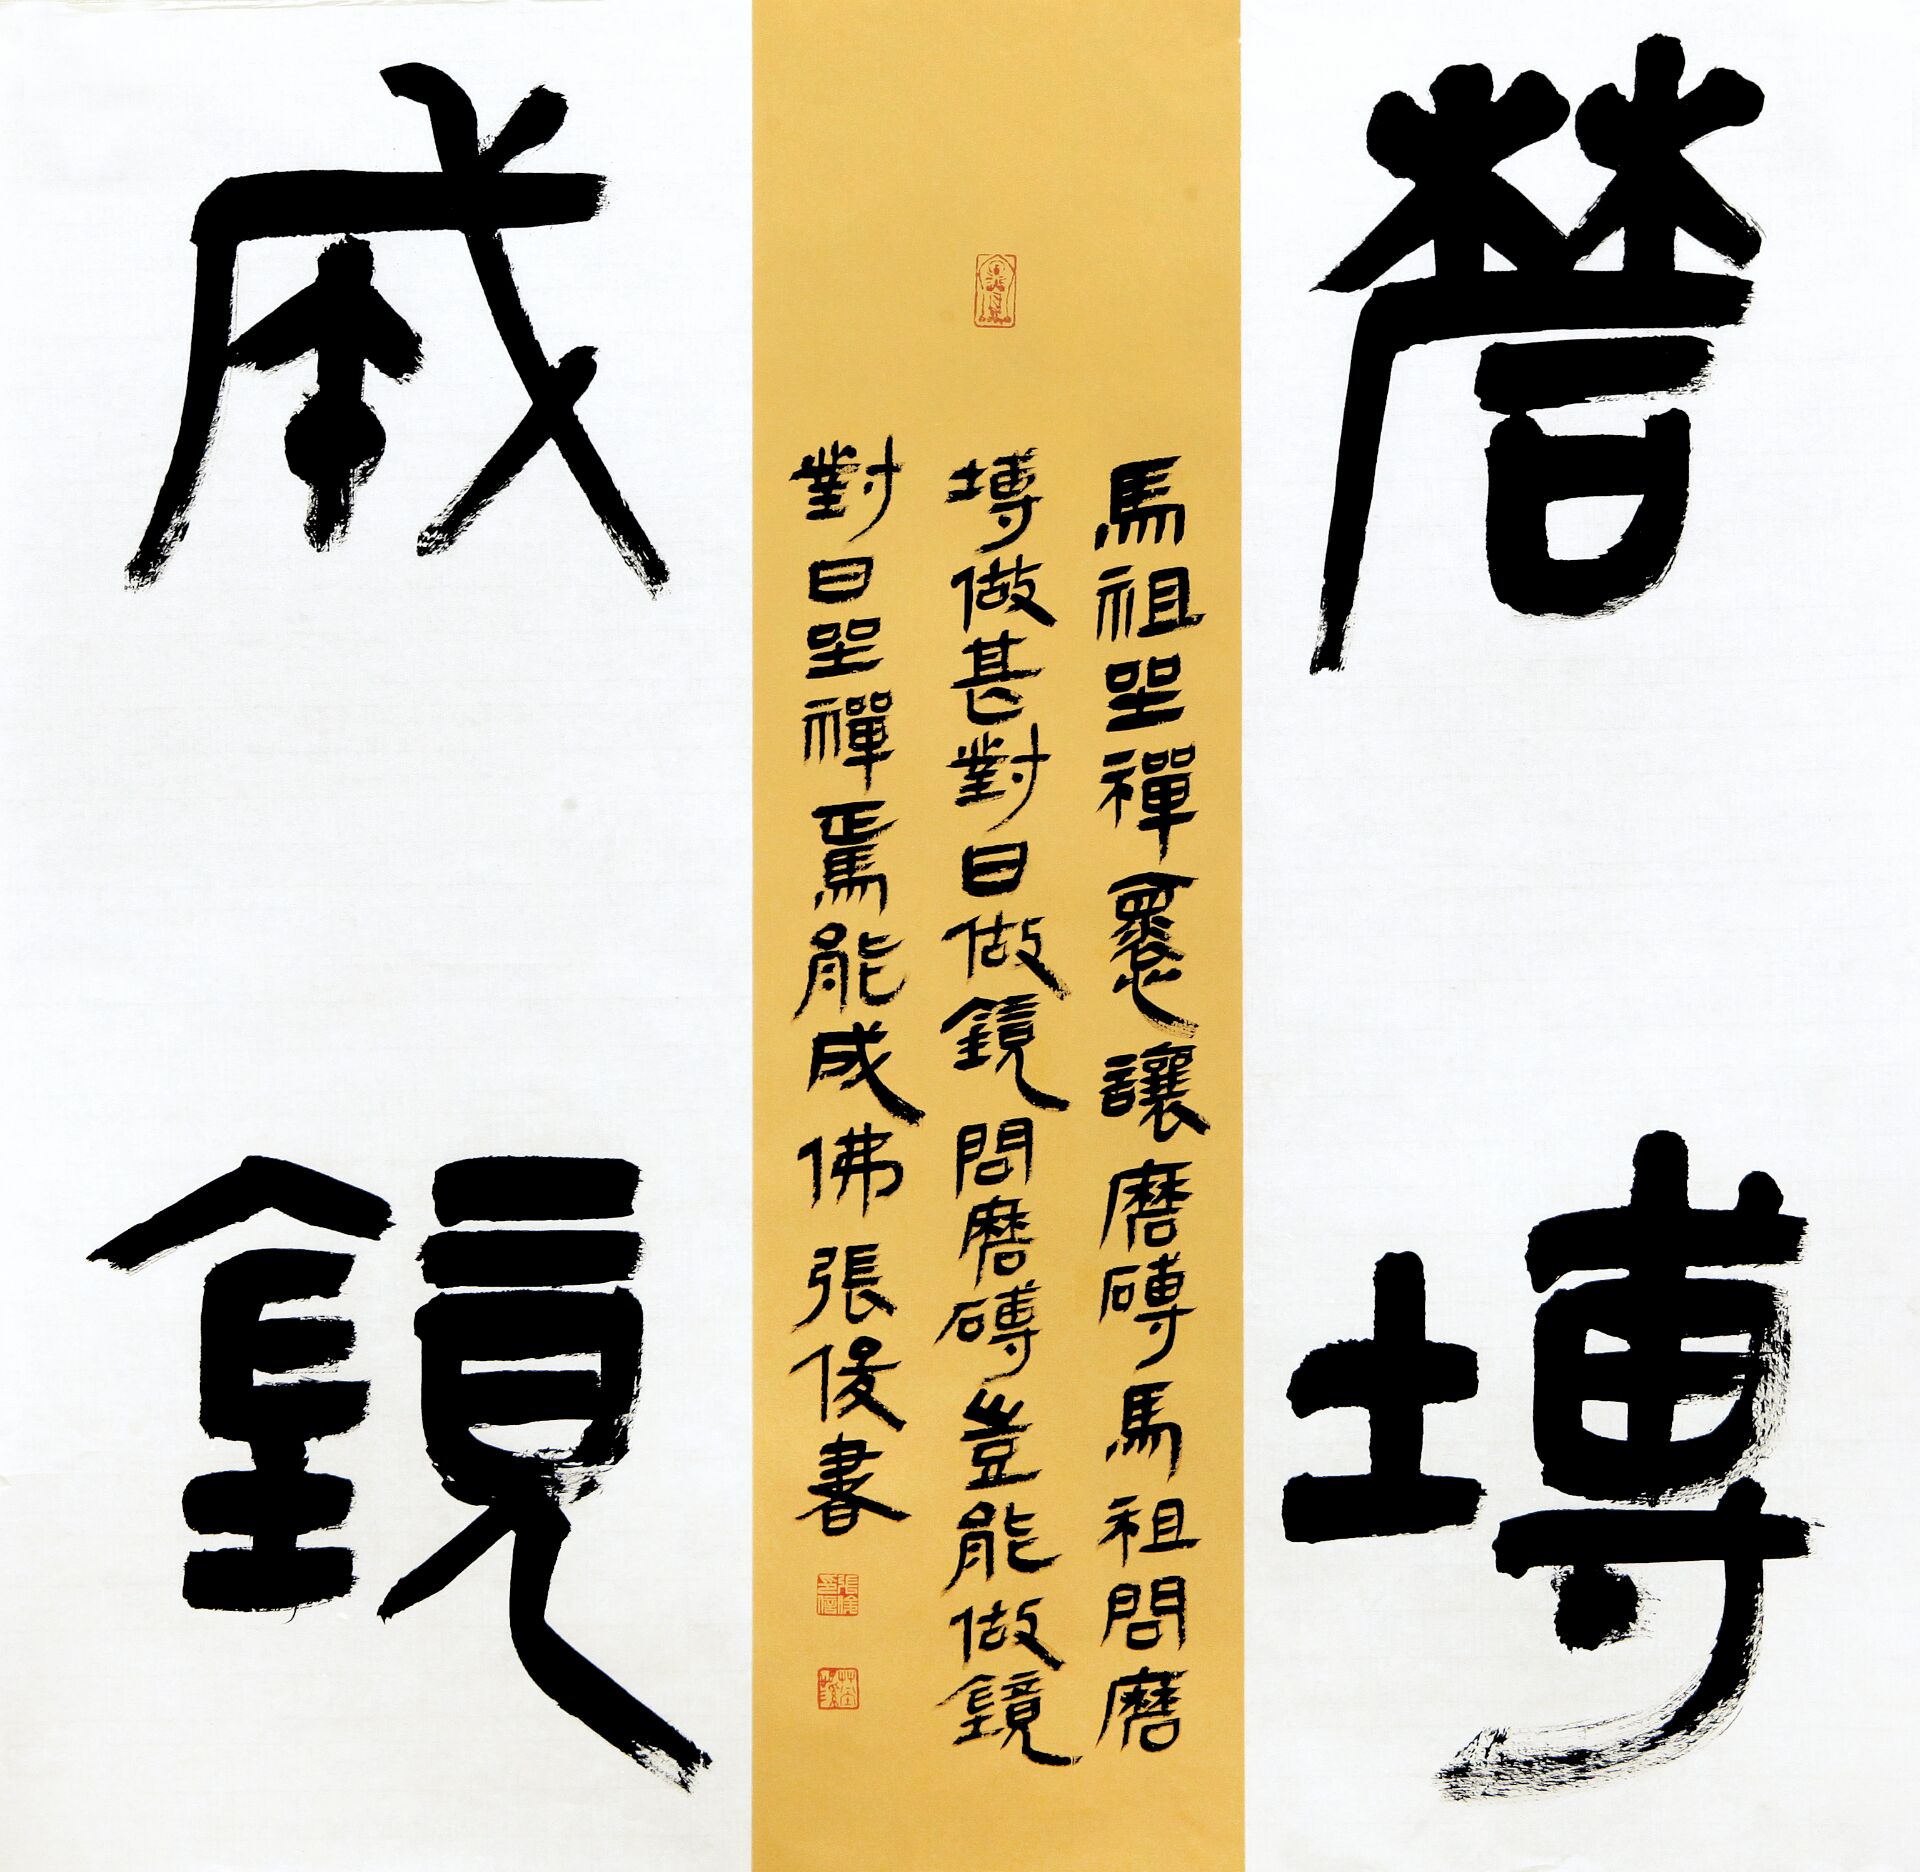 磨塼
馬祖坐禪褱讓磨磚馬祖問磨
塼做甚對曰做鏡問磨磚豈能做鏡
對曰坐禪焉能成佛張俊書
成鏡